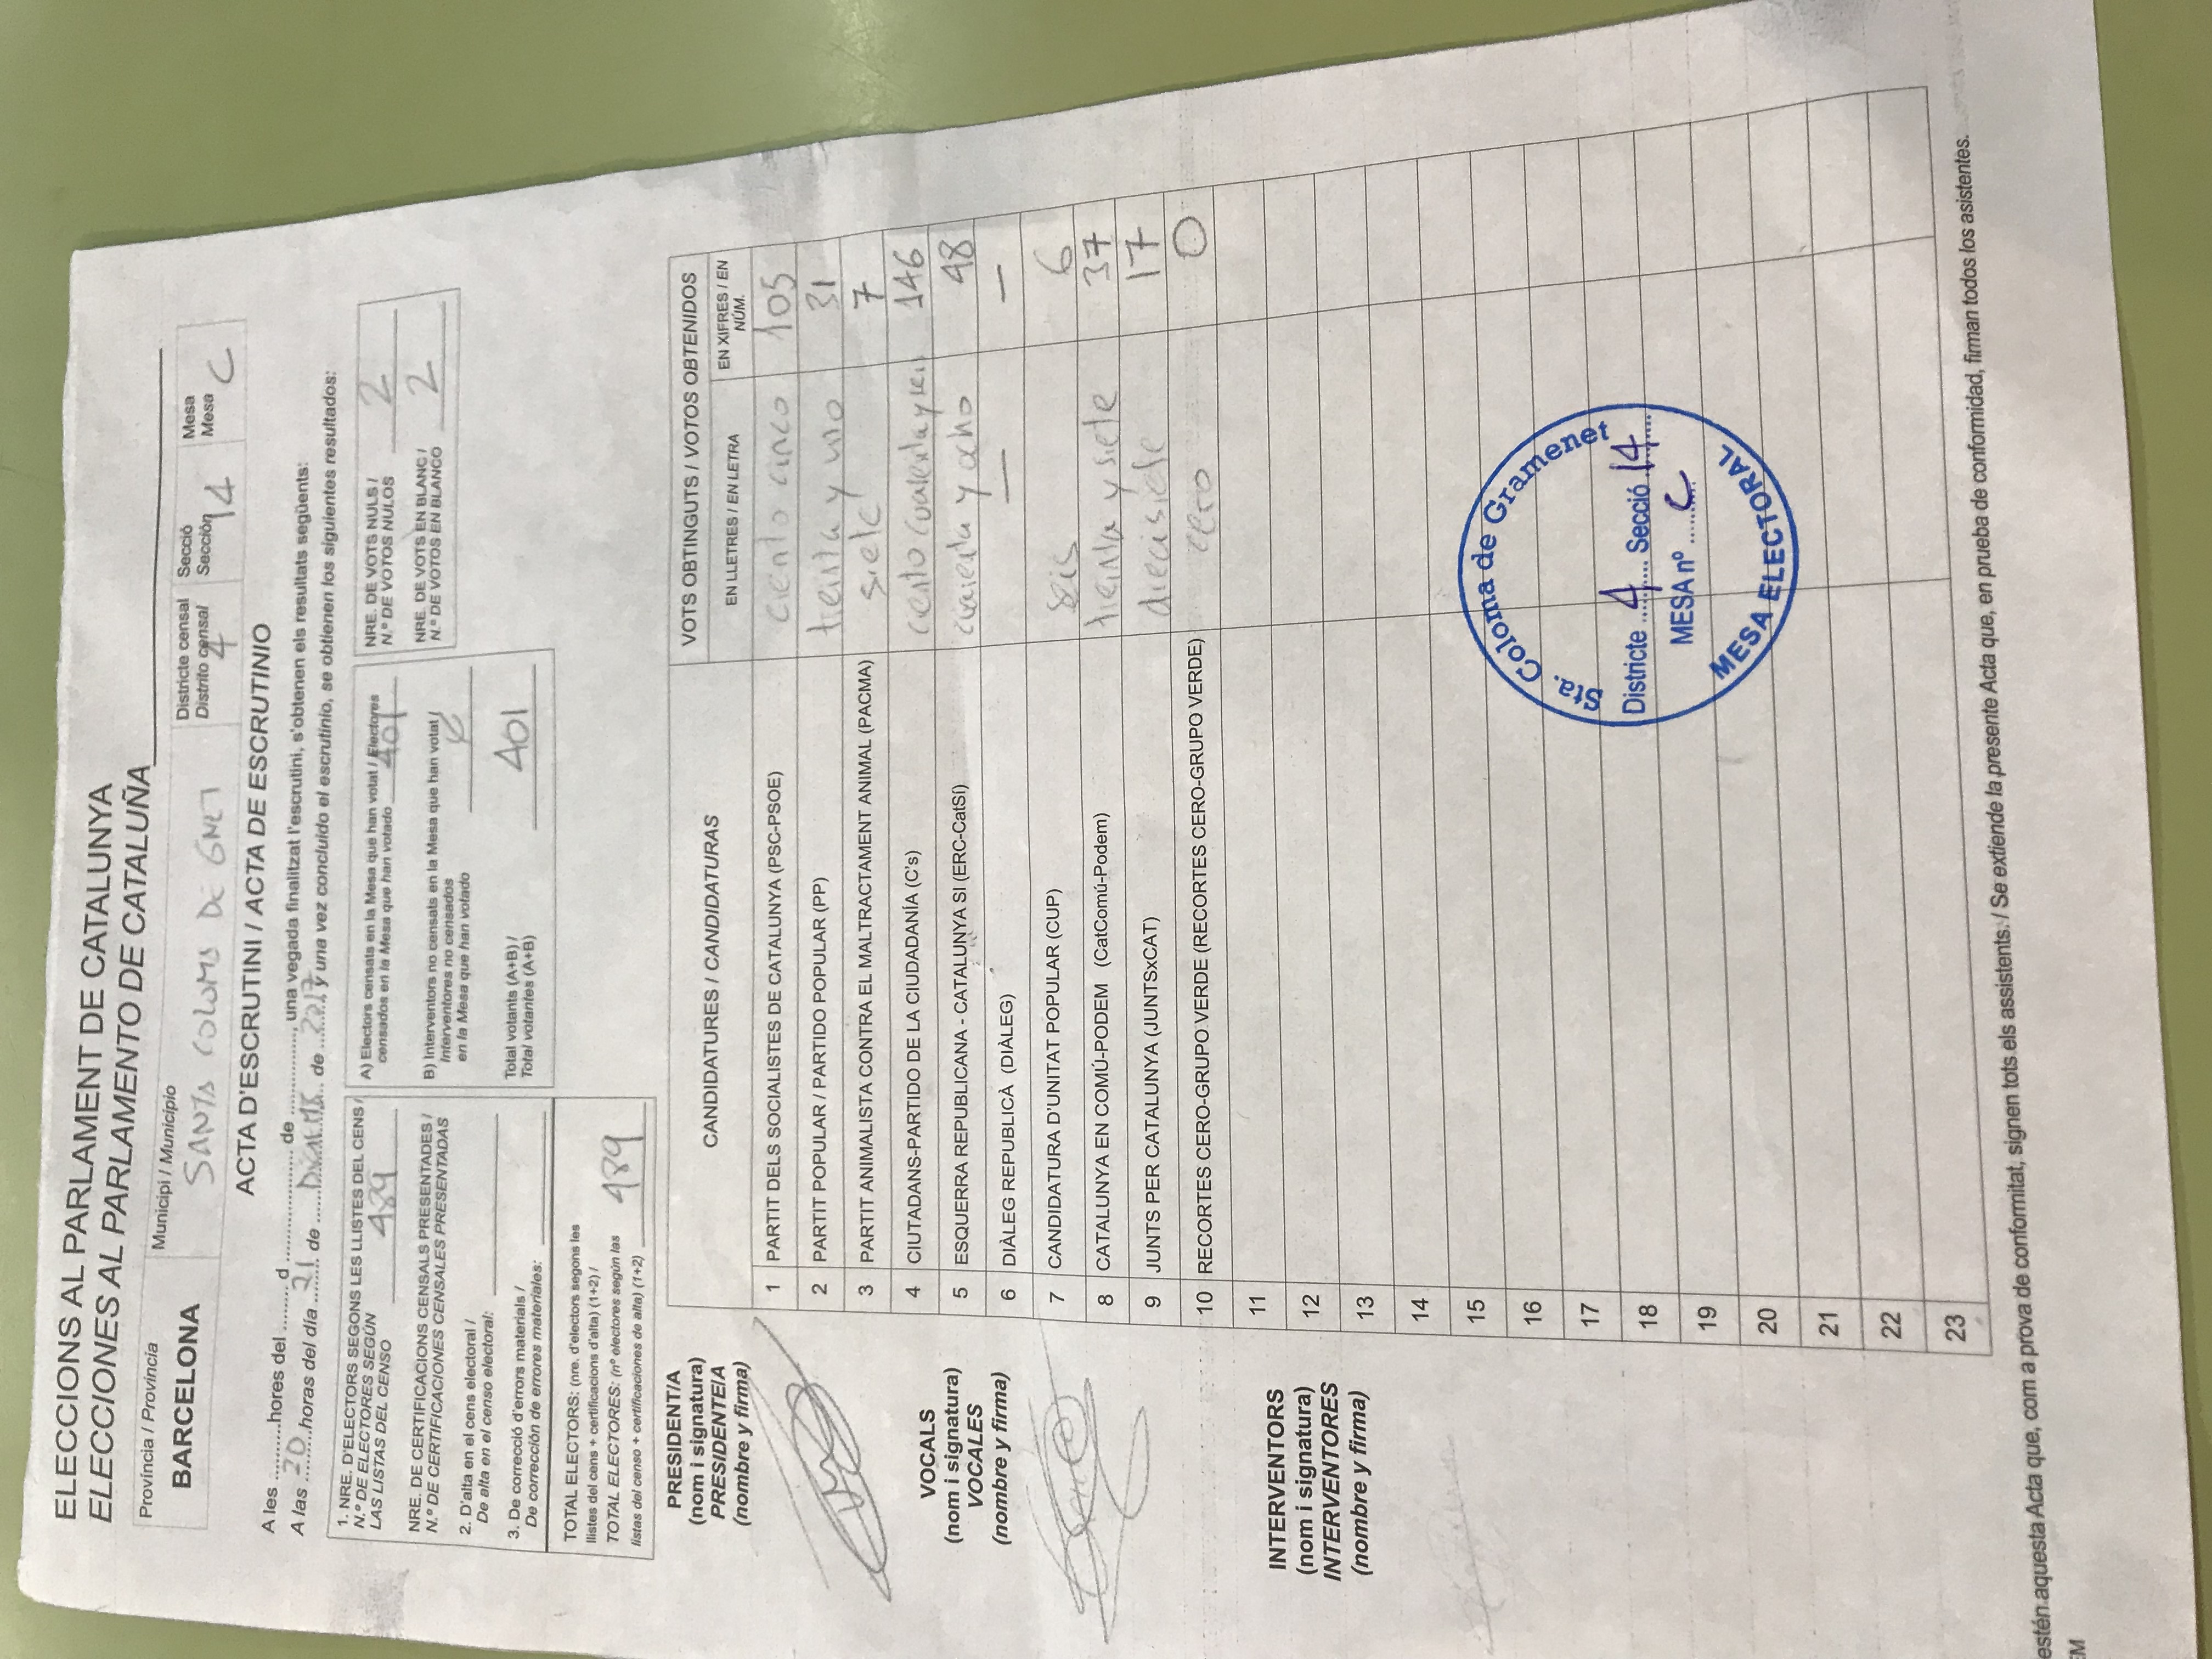 ELECCIONS AL PARLAMENT DE CATALUNYA
ELECCIONES AL PARLAMENTO DE CATALUÑA
Província / Provincia
BARCELONA
Municipi / Municipio
SANTA COLOMA DE GNET
Districte censal
Distrito censal
4
Secció
Sección
14
Mesa
Mesa
C
ACTA D'ESCRUTINI / ACTA DE ESCRUTINIO
A les ..........hores del ........ d .................... de ..............., una vegada finalitzat l'escrutini, s'obtenen els resultats següents:
A las 20 horas del día 21 de de 2017, y una vez concluido el escrutinio, se obtienen los siguientes resultados:
1. NRE. D'ELECTORS SEGONS LES LLISTES DEL CENS /
N.º DE ELECTORES SEGÚN
LAS LISTAS DEL CENSO 489
NRE. DE CERTIFICACIONS CENSALS PRESENTADES /
N.º DE CERTIFICACIONES CENSALES PRESENTADAS
2. D'alta en el cens electoral /
De alta en el censo electoral:
3. De correcció d'errors materials /
De corrección de errores materiales:
TOTAL ELECTORS: (nre. d'electors segons les
llistes del cens + certificacions d'alta) (1+2) /
TOTAL ELECTORES: (nº electores según las
listas del censo + certificaciones de alta) (1+2) 489
A) Electors censats en la Mesa que han votat / Electores
censados en la Mesa que han votado 401
B) Interventors no censats en la Mesa que han votat /
Interventores no censados
en la Mesa que han votado
Total votants (A+B) /
Total votantes (A+B) 401
NRE. DE VOTS NULS /
N.º DE VOTOS NULOS 2
NRE. DE VOTS EN BLANC /
N.º DE VOTOS EN BLANCO 2
PRESIDENT/A
(nom i signatura)
PRESIDENTE/A
(nombre y firma)
VOCALS
(nom i signatura)
VOCALES
(nombre y firma)
INTERVENTORS
(nom i signatura)
INTERVENTORES
(nombre y firma)
CANDIDATURES / CANDIDATURAS
VOTS OBTINGUTS / VOTOS OBTENIDOS
EN LLETRES / EN LETRA
EN XIFRES / EN
NÚM.
1 PARTIT DELS SOCIALISTES DE CATALUNYA (PSC-PSOE) ciento cinco 105
2 PARTIT POPULAR / PARTIDO POPULAR (PP) treinta y uno 31
3 PARTIT ANIMALISTA CONTRA EL MALTRACTAMENT ANIMAL (PACMA) siete 7
4 CIUTADANS-PARTIDO DE LA CIUDADANÍA (C's) ciento cuarenta y seis 146
5 ESQUERRA REPUBLICANA - CATALUNYA SI (ERC-CatSí) cuarenta y ocho 48
6 DIÀLEG REPUBLICÀ (DIÀLEG) — —
7 CANDIDATURA D'UNITAT POPULAR (CUP) seis 6
8 CATALUNYA EN COMÚ-PODEM (CatComú-Podem) treinta y siete 37
9 JUNTS PER CATALUNYA (JUNTSxCAT) diecisiete 17
10 RECORTES CERO-GRUPO VERDE (RECORTES CERO-GRUPO VERDE) cero 0
11
12
13
14
15
16
17
18
19
20
21
22
23
Sta. Coloma de Gramenet
Districte 4 Secció 14
MESA nº C
MESA ELECTORAL
estén aquesta Acta que, com a prova de conformitat, signen tots els assistents. / Se extiende la presente Acta que, en prueba de conformidad, firman todos los asistentes.
EM